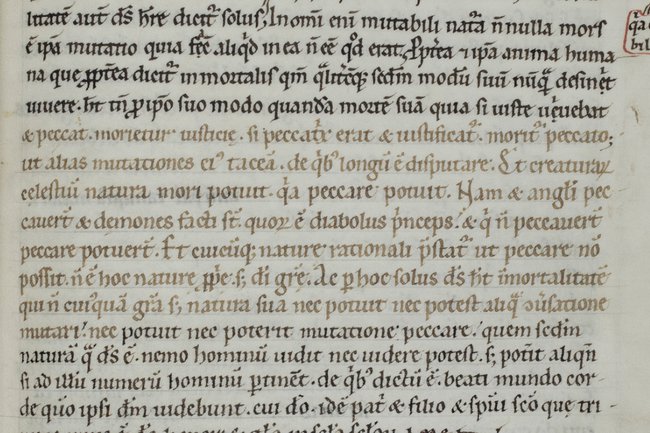 litatē aut dś h̄re dicit᷑ solus, In om̄i eni mutabili nat᷑a n̄ nulla mors
ē ipa mutatio quia fec̄ aliq̄d in ea n̄ ēē qd erat. ꝓpt̄ea & ipa anima huma
na que ꝓpt̄ea dicit᷑ inmortalis qm̄ q̄lit̄cūq; scd̄m modū suū nūq̄ desinet
uiuere. ht tn̄ ꝓ ipo suo modo quandā mortē suā quia si iuste uiuebat
& peccat. morietur iusticie. si peccat̄x erat & iustificat᷑. morit᷑ peccato;
ut alias mutationes ei᷒ taceā. de qb᷒ longū ē disputare. Et creaturaꝝ
celestiū natura mori potuit. q̄a peccare potuit. Nam & angli pec
cauert̄ & demones facti st̄. quoꝝ ē diabolus p̄nceps. & q̄ n̄ peccauert̄
peccare potuert̄. Et cuicūq; nature rationali p̄stat᷑ ut peccare nō
possit. n̄ ē hoc nature ꝓp̄e. s; dī gr̄e. Ac ꝑ hoc solus dś ht īmortalitatē
qui n̄ cui᷒quā gr̄a s; natura sua nec potuit nec potest aliq̄ 9uersatione
mutari. nec potuit nec poterit mutatione peccare. quem scdm
naturā q̄ dś ē. nemo hominū uidit nec uidere potest. s; potīt aliqn̄
si ad illū numerū hominū ꝑtinēt. de qb᷒ dictū ē. beati mundo cor-
de quō ipsi dm̄ uidebunt. cui dō. idē pat᷑ & filio & spūi scō que tri-